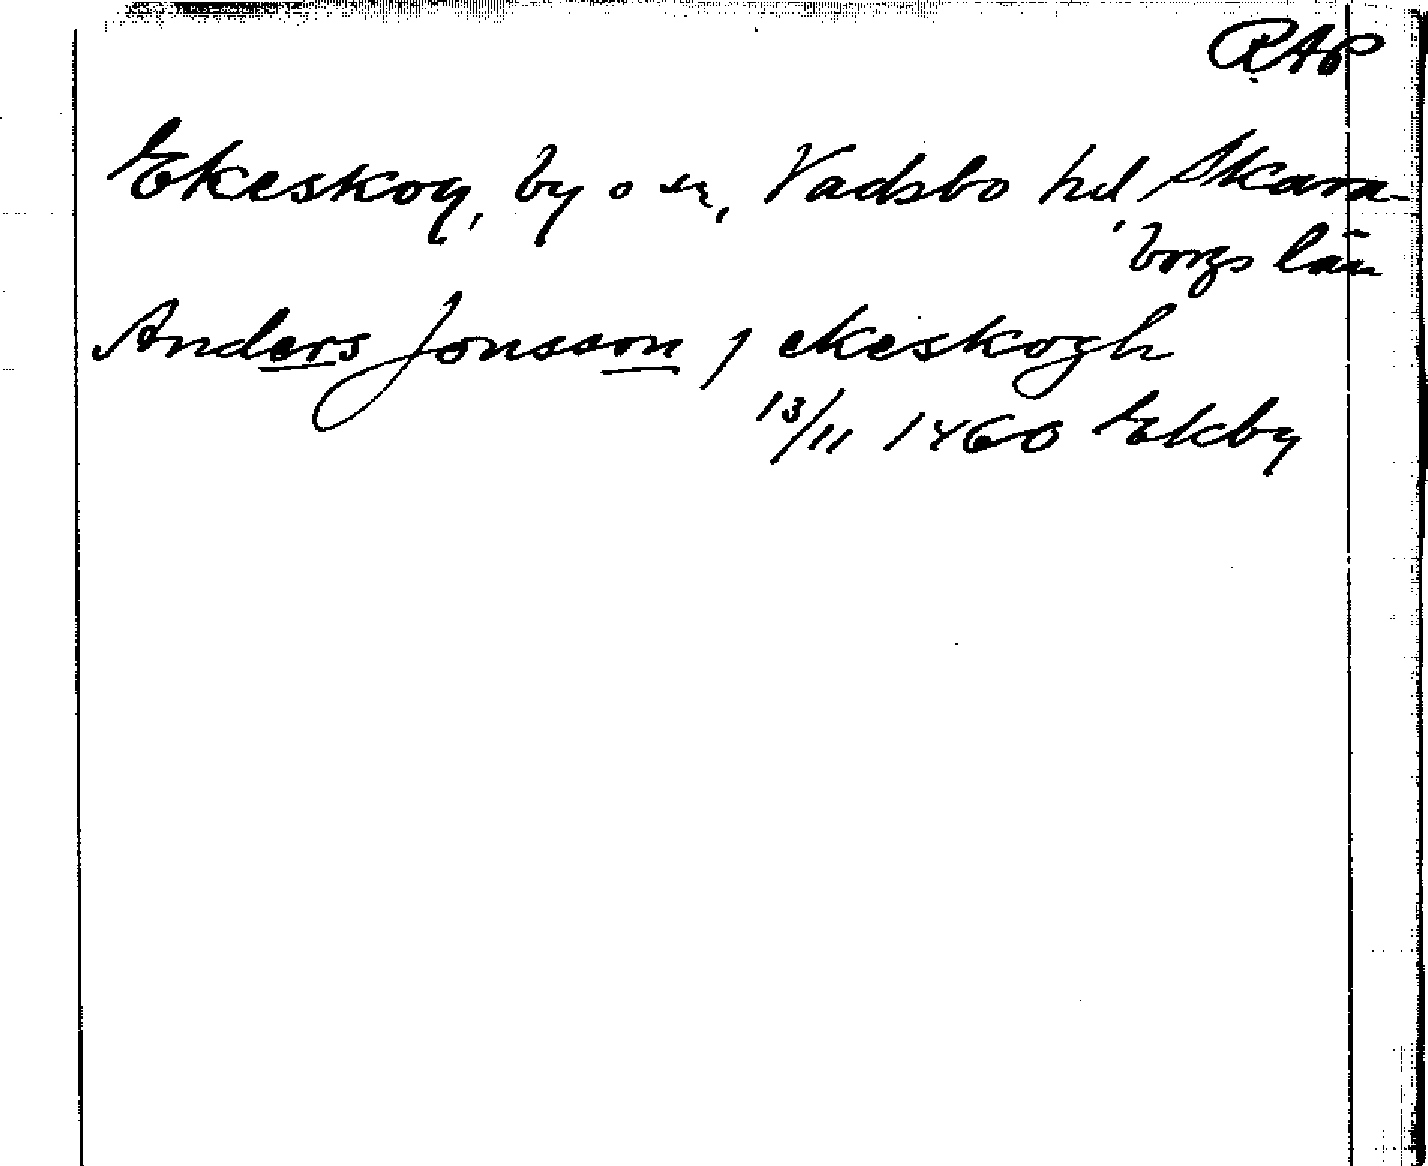 RAP
Ekeskog, by o sn, Vadsbo hd, Skara-
borgs län
Anders Jonsson j ekeskogh
13/11 1460 Ekby